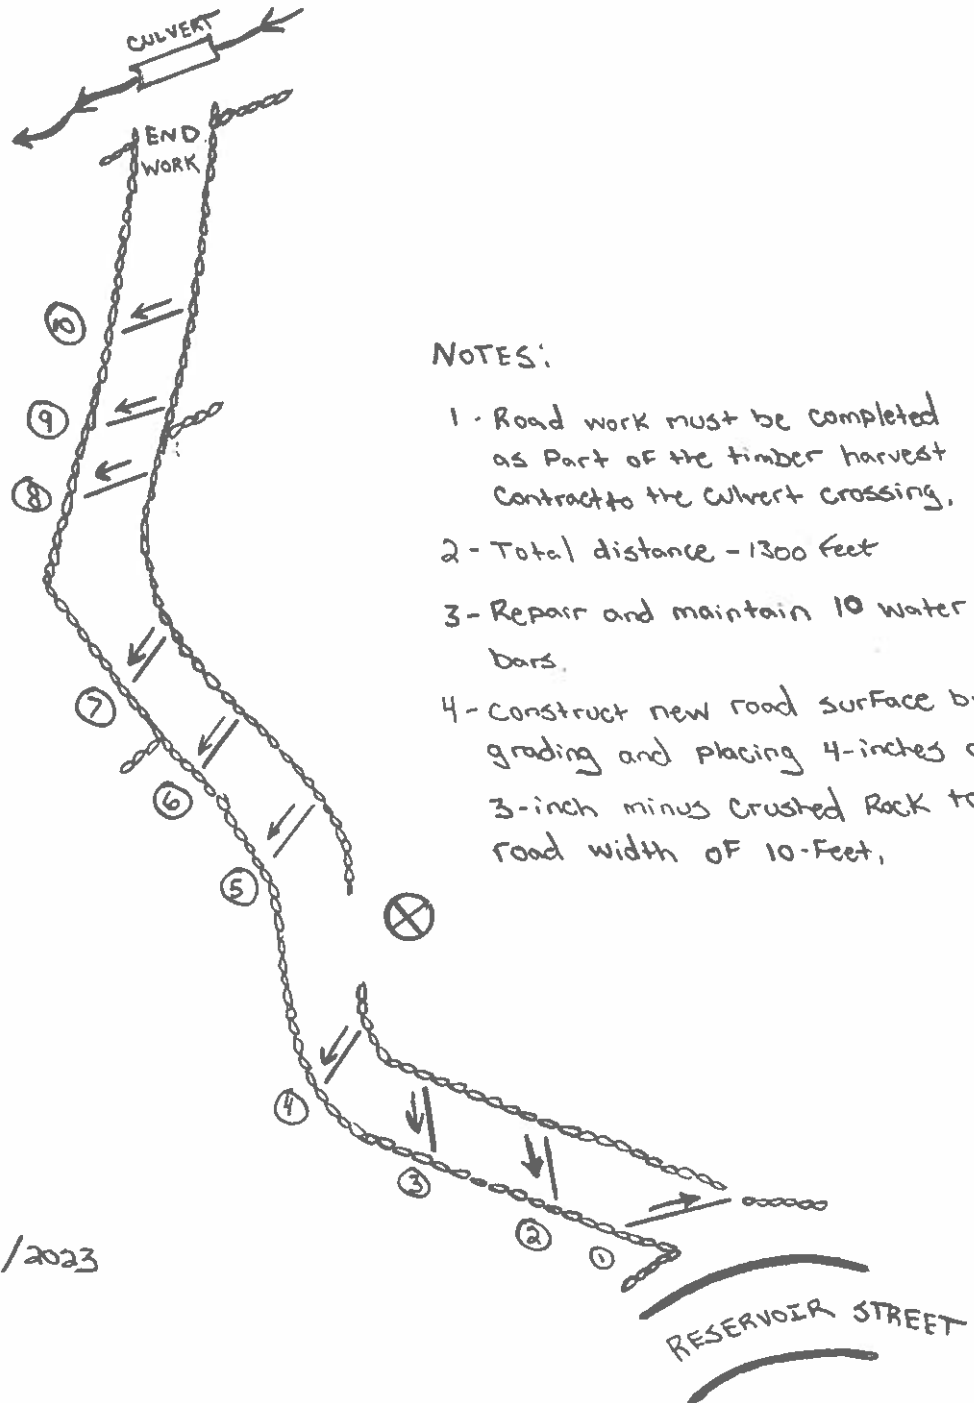 CULVERT
END
WORK
10
9
8
7
6
5
4
3
2
1
NOTES:
1 - Road work must be completed
as Part of the timber harvest
Contract to the culvert crossing.
2 - Total distance - 1300 feet
3 - Repair and maintain 10 water
bars.
4 - Construct new road surface
grading and placing 4-inches
3-inch minus crushed Rock
road width of 10-Feet.
/2023
RESERVOIR STREET